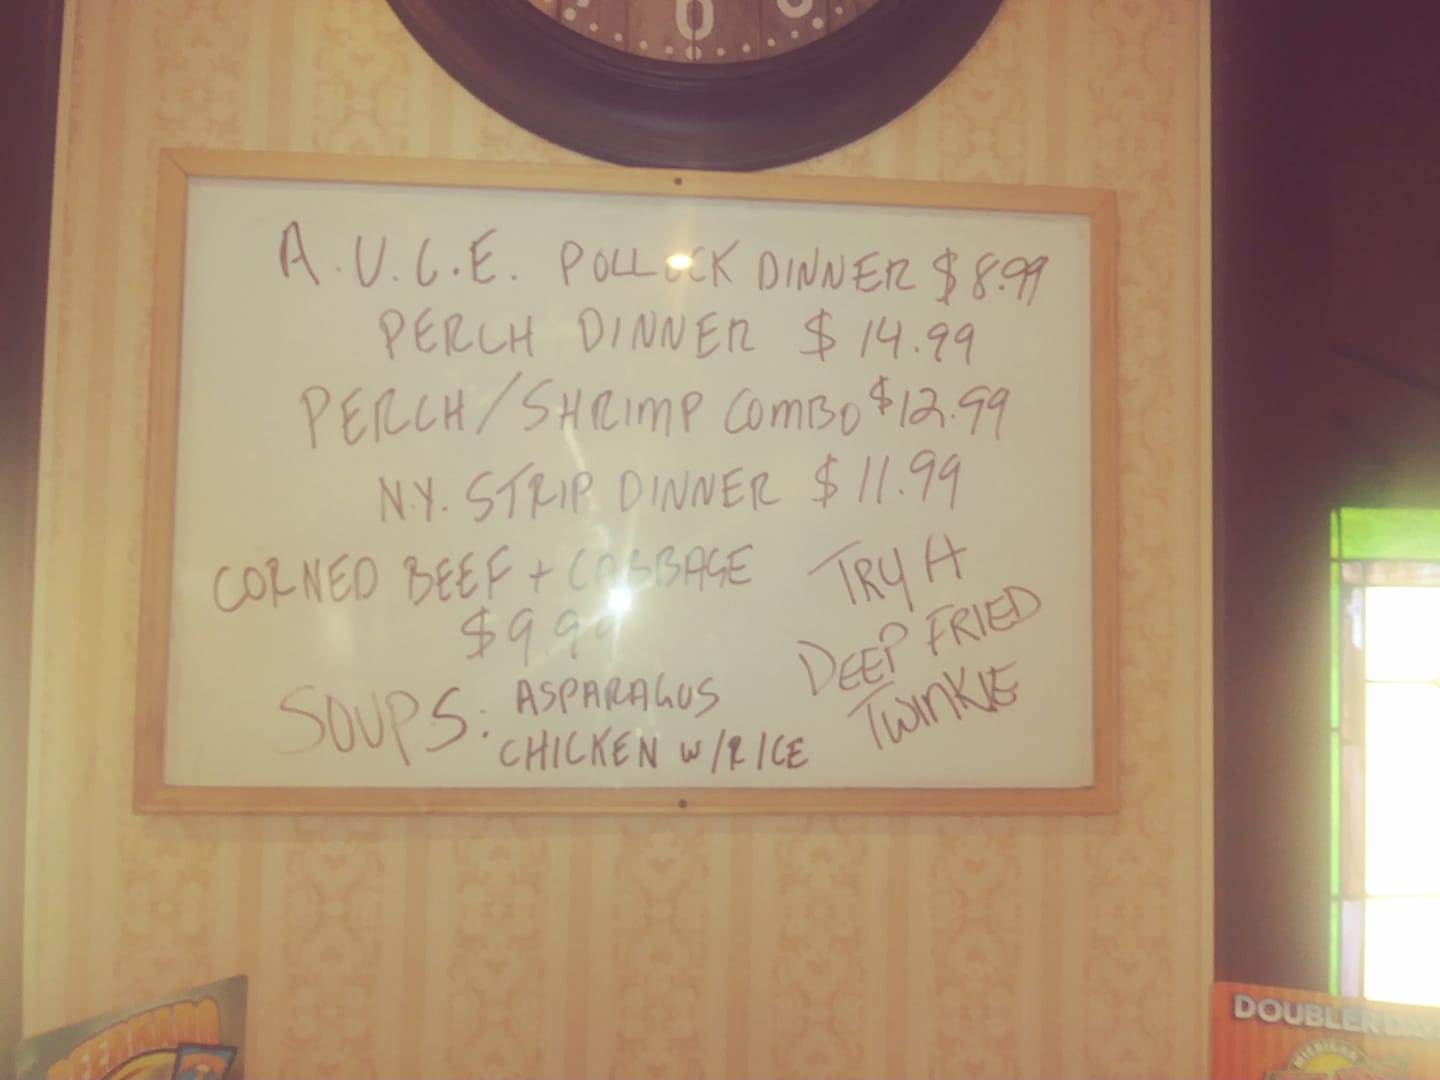 A.U.C.E. POLLOCK DINNER $8.99
PERCH DINNER $14.99
PERCH/SHRIMP COMBO $12.99
N.Y. STRIP DINNER $11.99
CORNED BEEF + CABBAGE
$9.99
TRY A
DEEP FRIED
TWINKIE
SOUPS: ASPARAGUS
CHICKEN W/RICE
DOUBLER
MICHIGAN